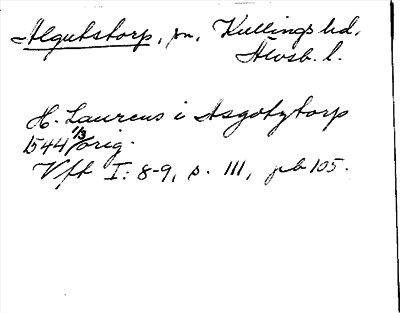 Algutstorp, sn, Kullings hd,
Älvsb. l.
H. Laurens i Asgotztorp
1544 1/3 orig.
Vft I: 8-9, s. 111, pb 105.